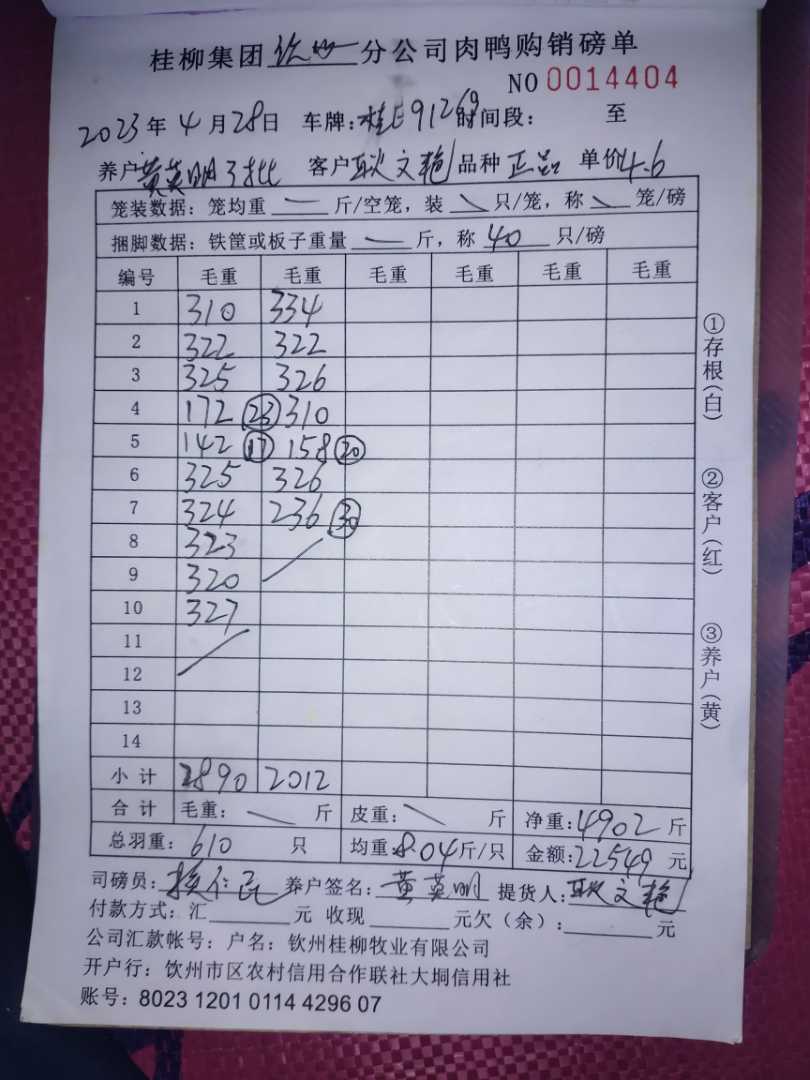 桂柳集团 钦州 分公司肉鸭购销磅单
NO 0014404
2023年4月28日 车牌:桂E91269时间段: 至
养户黄英明3批 客户耿文艳 品种正品 单价4.6
笼装数据:笼均重 — 斤/空笼,装 \ 只/笼,称 \ 笼/磅
捆脚数据:铁筐或板子重量 — 斤,称 40 只/磅
编号 毛重 毛重 毛重 毛重 毛重 毛重
1 310 334
2 322 322
3 325 326
4 172 ㉓ 310
5 142 ⑰ 158 ⑳
6 325 326
7 324 236 ㉚
8 323
9 320
10 327
11
12
13
14
小计 2890 2012
合计 毛重: \ 斤 皮重: \ 斤 净重:4902斤
总羽重:610 只 均重:8.04斤/只 金额:22549元
司磅员: 养户签名:黄英明 提货人:耿文艳
付款方式:汇 元 收现 元欠(余): 元
公司汇款帐号:户名:钦州桂柳牧业有限公司
开户行:饮州市区农村信用合作联社大垌信用社
账号:8023 1201 0114 4296 07
①存根(白)
②客户(红)
③养户(黄)